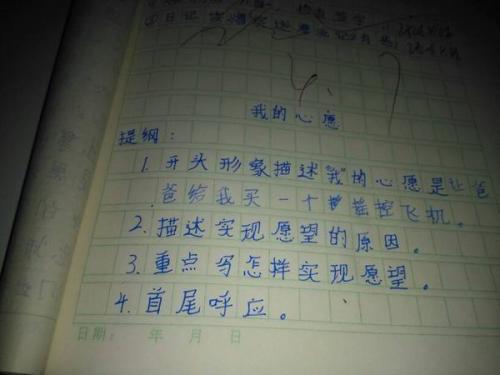 我的心愿
提纲：
1.开头形象描述"我"的心愿是让爸
爸给我买一个遥控飞机。
2.描述实现愿望的原因。
3.重点写怎样实现愿望。
4.首尾呼应。
日期： 年 月 日